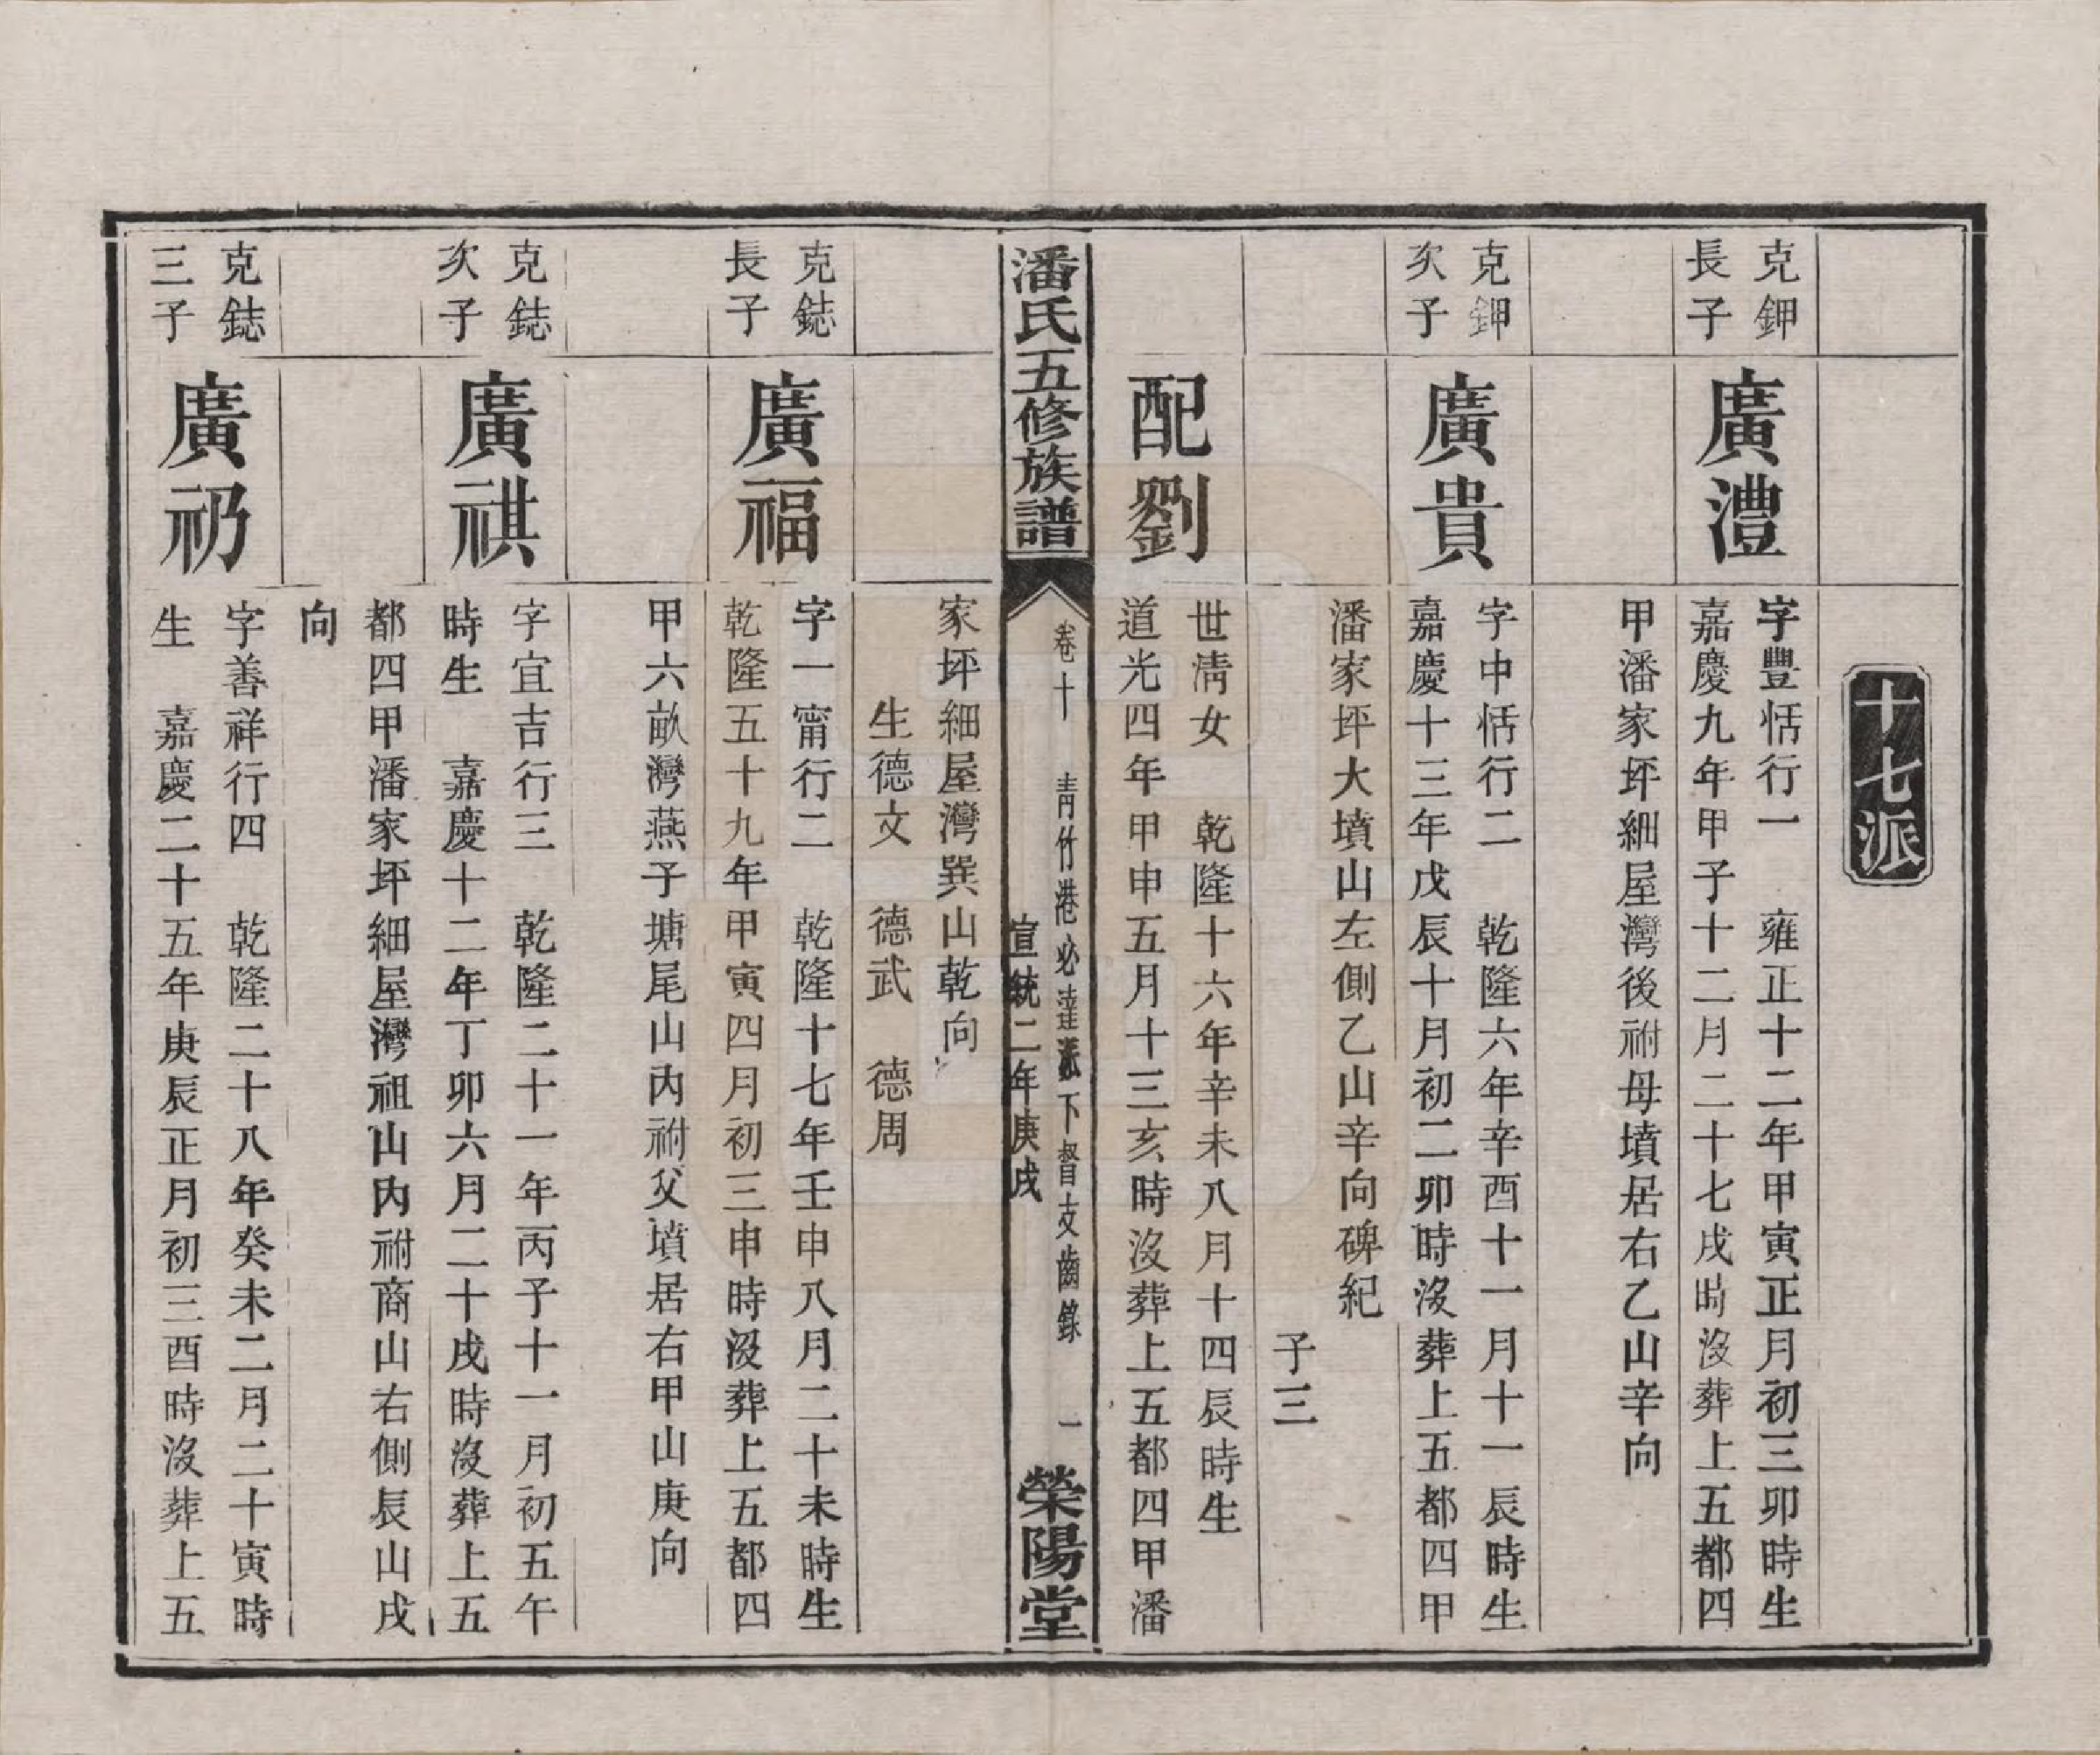 十七派
克鉀
長子
廣澧
字豐恬行一 雍正十二年甲寅正月初三卯時生
嘉慶九年甲子十二月二十七戌時沒葬上五都四
甲潘家坪細屋灣後祔母墳居右乙山辛向
克鉀
次子
廣貴
字中恬行二 乾隆六年辛酉十一月十一辰時生
嘉慶十三年戊辰十月初二卯時沒葬上五都四甲
潘家坪大墳山左側乙山辛向碑紀
子三
配劉
世淸女 乾隆十六年辛未八月十四辰時生
道光四年甲申五月十三亥時沒葬上五都四甲潘
潘氏五修族譜
卷十 靑竹港必達派下督支齒錄 一
宣統二年庚戌
榮陽堂
家坪細屋灣巽山乾向
生德文 德武 德周
克鋕
長子
廣福
字一甯行二 乾隆十七年壬申八月二十未時生
乾隆五十九年甲寅四月初三申時沒葬上五都四
甲六畝灣燕子塘尾山內祔父墳居右甲山庚向
克鋕
次子
廣祺
字宜吉行三 乾隆二十一年丙子十一月初五午
時生 嘉慶十二年丁卯六月二十戌時沒葬上五
都四甲潘家坪細屋灣祖山內祔商山右側辰山戌
向
克鋕
三子
廣礽
字善祥行四 乾隆二十八年癸未二月二十寅時
生 嘉慶二十五年庚辰正月初三酉時沒葬上五